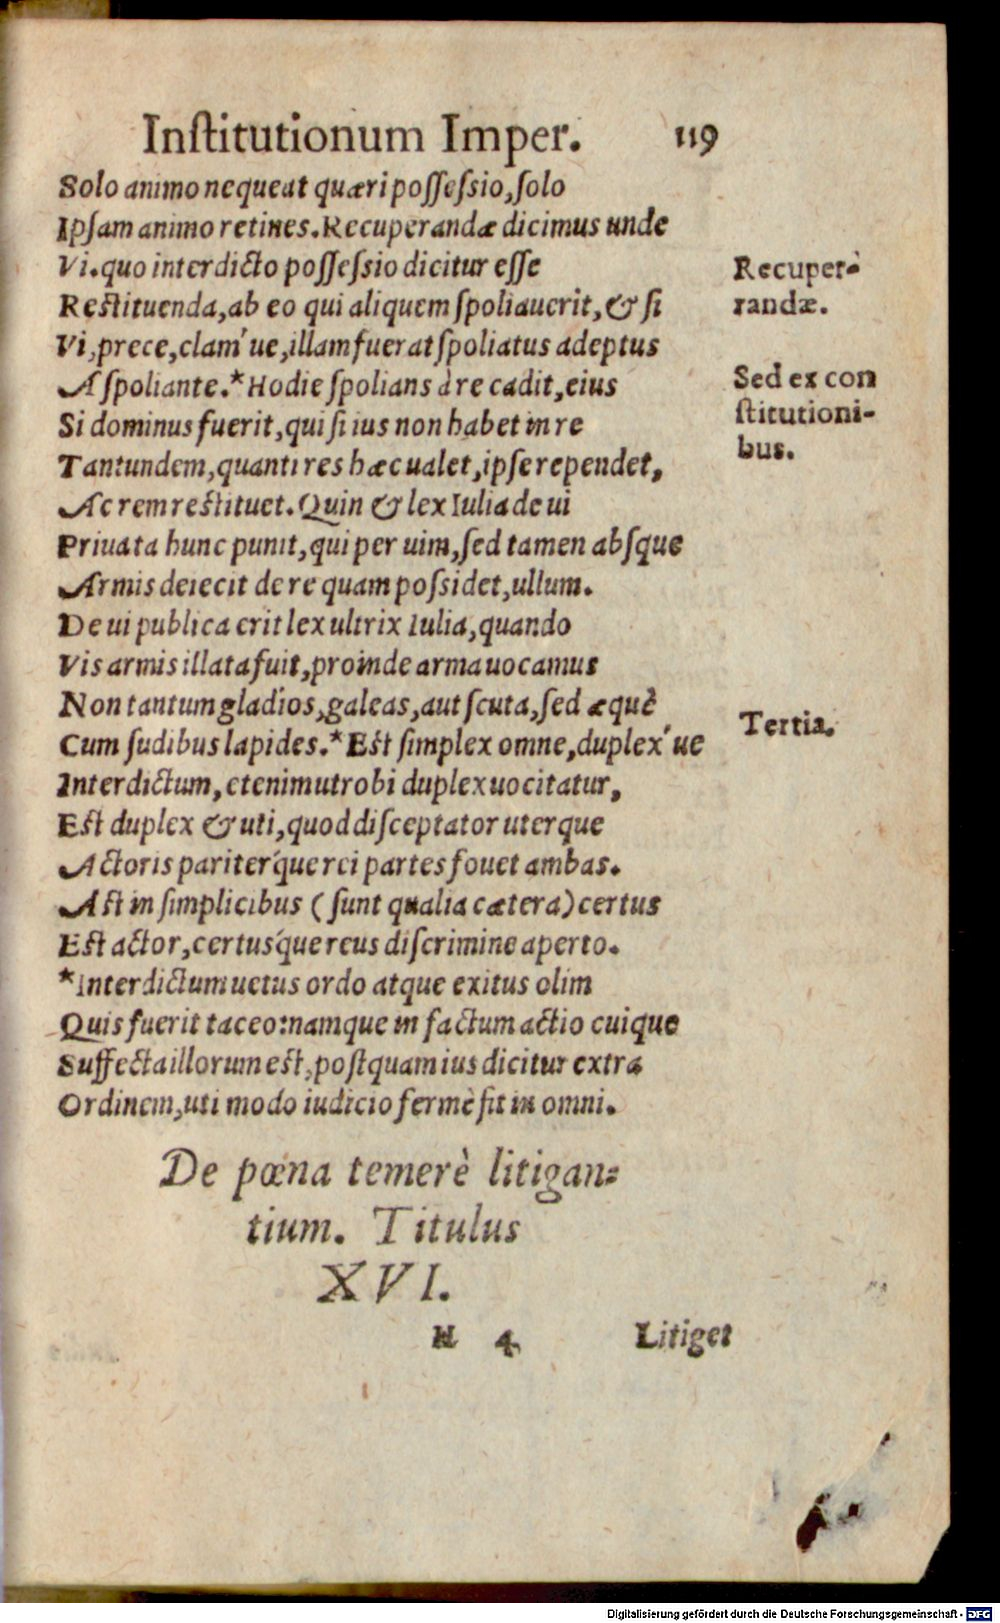 Inſtitutionum Imper. 119
Solo animo nequeat quæri poſſeſsio, ſolo
Ipſam animo retines. Recuperandæ dicimus unde
Vi. quo interdicto poſſeſsio dicitur eſſe
Recuperè
Reſtituenda, ab eo qui aliquem ſpoliauerit, & ſi
randæ.
Vi, prece, clam´ue, illam fuerat ſpoliatus adeptus
A ſpoliante.* Hodie ſpolians à re cadit, eius
Sed ex con
Si dominus fuerit, qui ſi ius non habet in re
ſtitutioni-
Tantundem, quanti res hæc ualet, ipſe rependet,
bus.
Ac rem reſtituet. Quin & lex Iulia de ui
Priuata hunc punit, qui per uim, ſed tamen abſque
Armis deiecit de re quam poſsidet, ullum.
De ui publica erit lex ultrix Iulia, quando
Vis armis illata fuit, proinde arma uocamus
Non tantum gladios, galeas, aut ſcuta, ſed æquè
Tertia.
Cum ſudibus lapides.* Eſt ſimplex omne, duplex´ue
Interdictum, etenim utrobi duplex uocitatur,
Eſt duplex & uti, quod diſceptator uterque
Actoris pariter´que rei partes fouet ambas.
Aſt in ſimplicibus (ſunt qualia cætera) certus
Eſt actor, certus´que reus diſcrimine aperto.
*Interdictum uetus ordo atque exitus olim
Quis fuerit taceo: namque in factum actio cuique
Suffecta illorum eſt, poſtquam ius dicitur extra
Ordinem, uti modò iudicio fermè fit in omni.
De pœna temerè litigan=
tium. Titulus
XVI.
H 4 Litiget
Digitalisierung gefördert durch die Deutsche Forschungsgemeinschaft - DFG